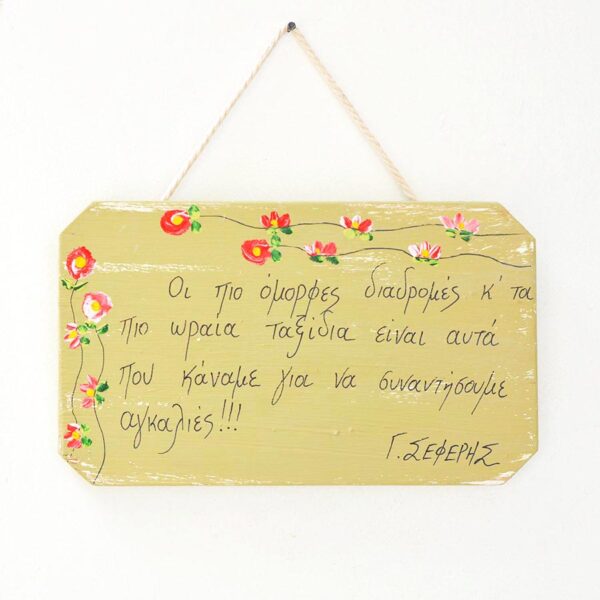 Οι πιο όμορφες διαδρομές κ' τα
πιο ωραια ταξίδια είναι αυτά
που κάναμε για να συναντήσουμε
αγκαλιές!!!
Γ. ΣΕΦΕΡΗΣ